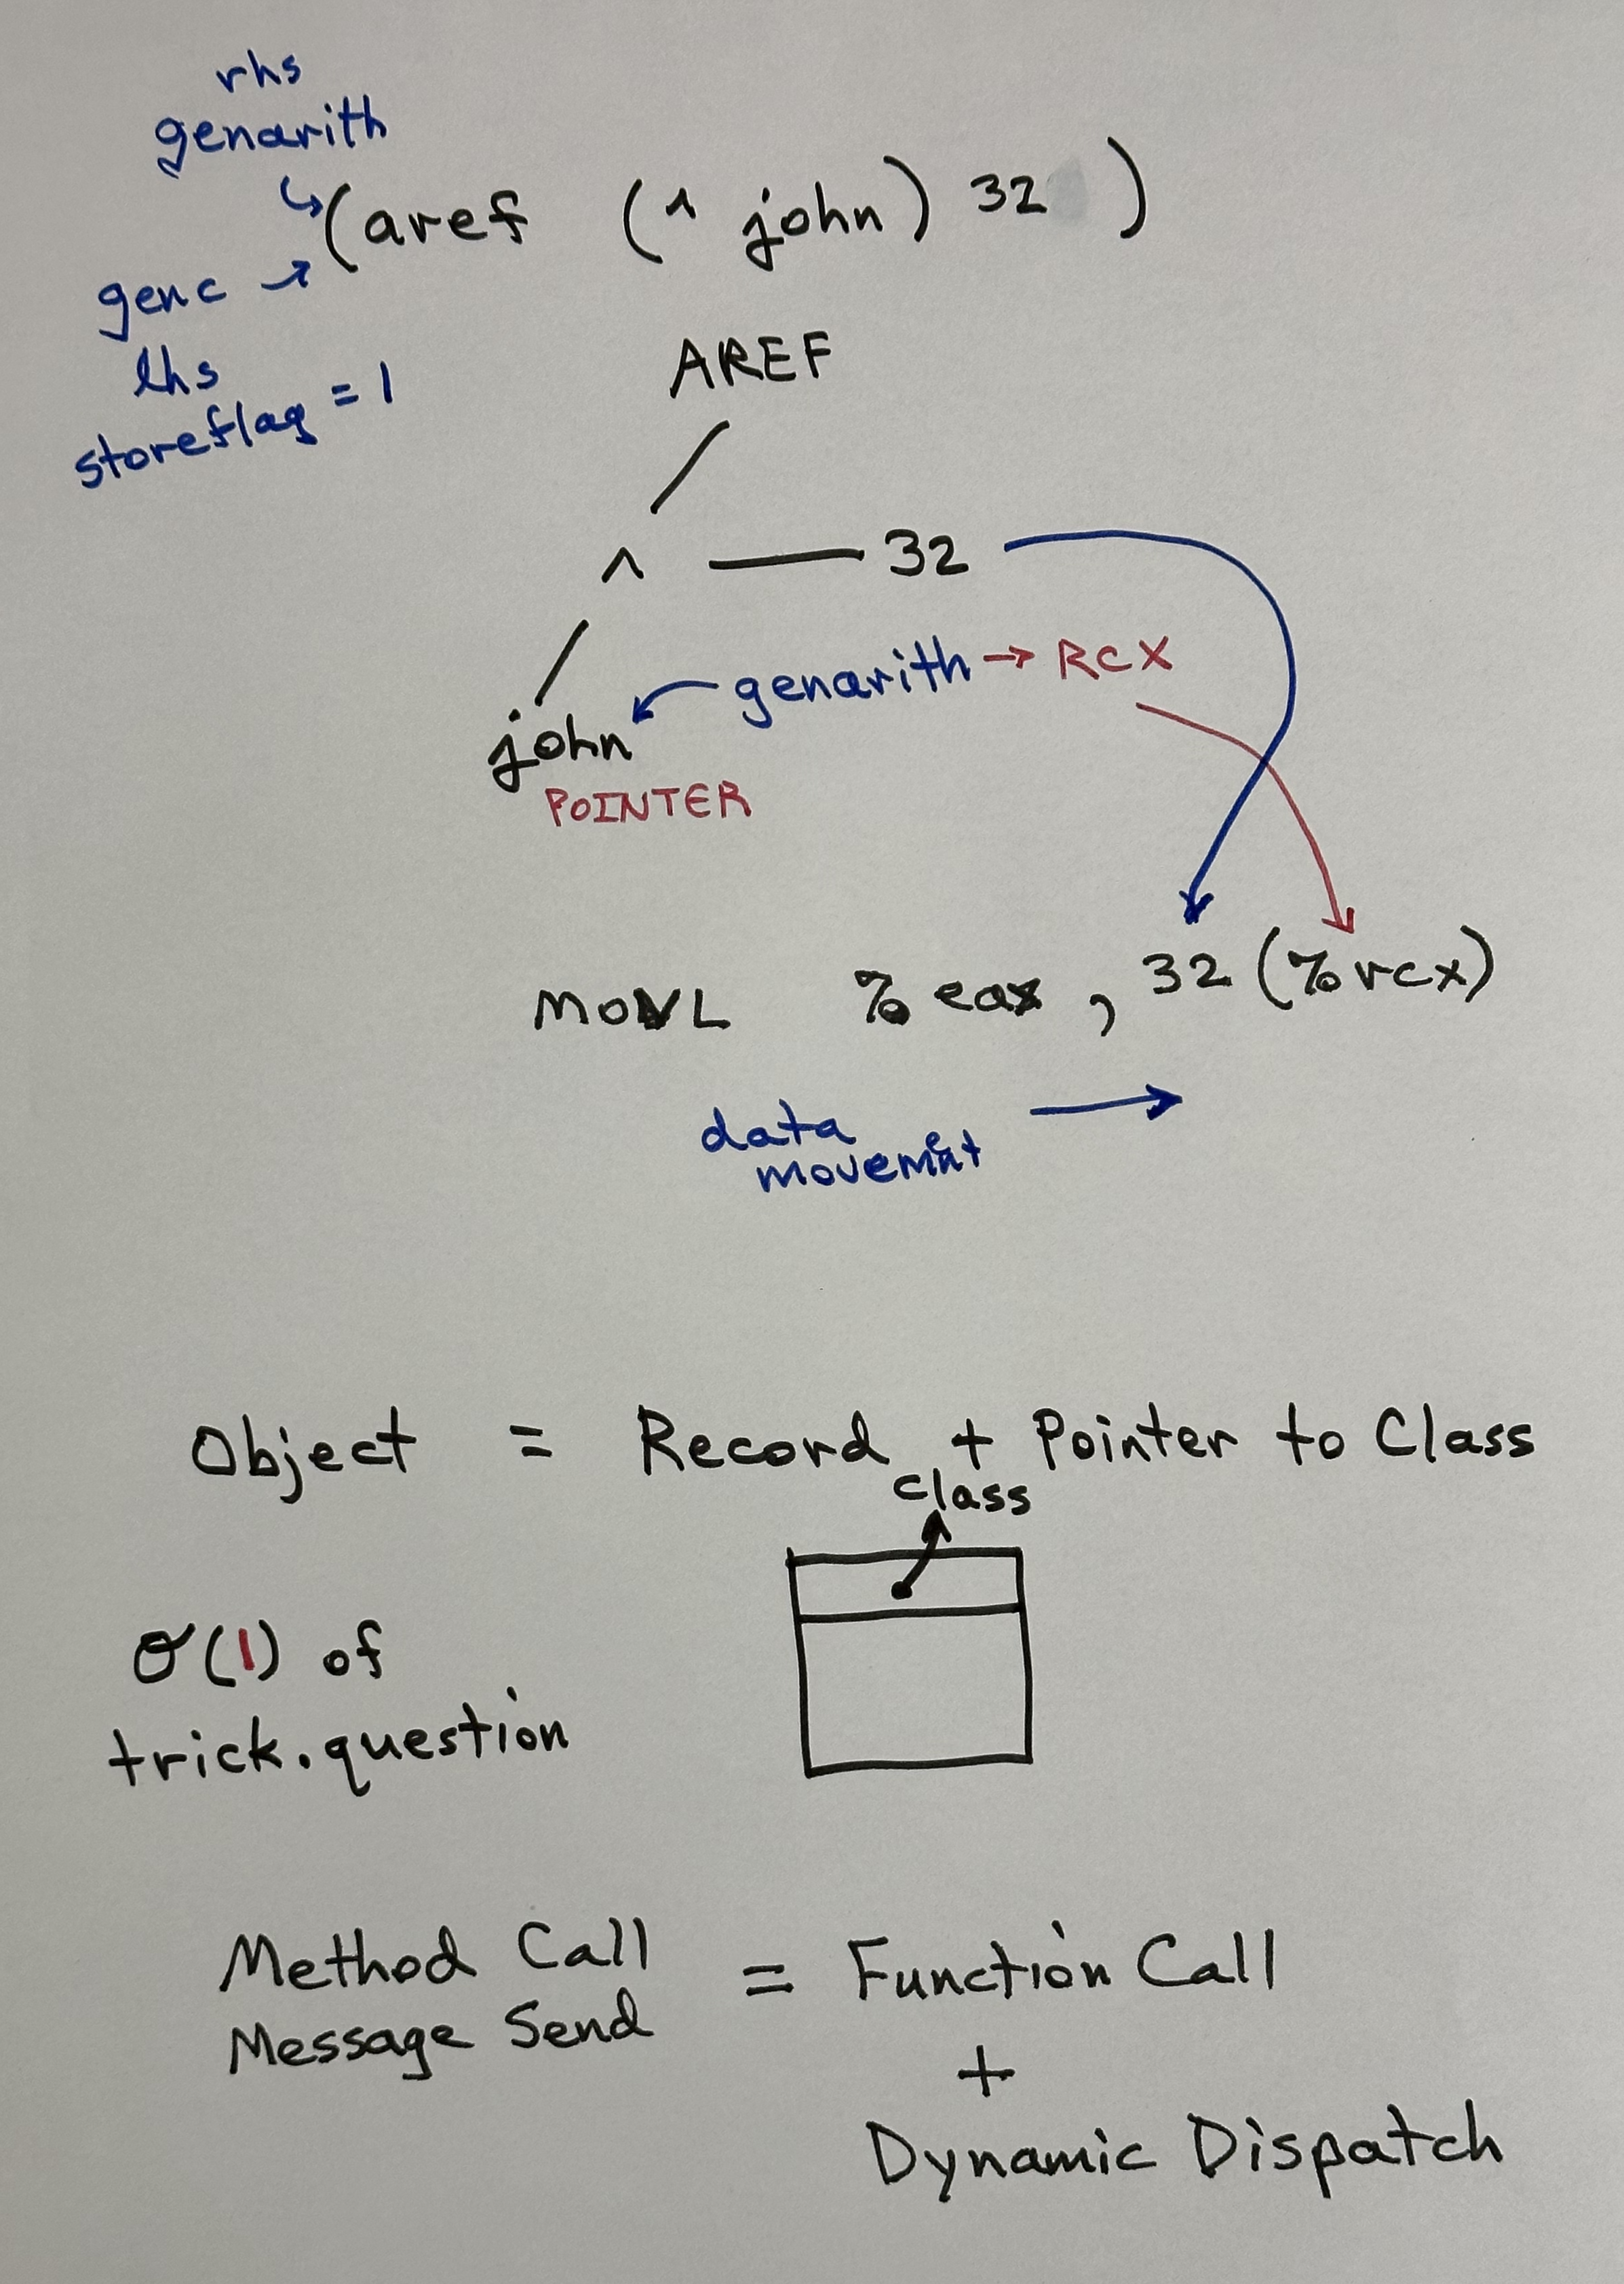 rhs
genarith
(aref (^ john) 32 )
genc
lhs
storeflag = 1
AREF
^ 32
genarith → RCX
john
POINTER
MOVL %eax , 32 (%rcx)
data
movement
Object = Record + Pointer to Class
class
O(1) of
trick.question
Method Call = Function Call
Message Send
+
Dynamic Dispatch